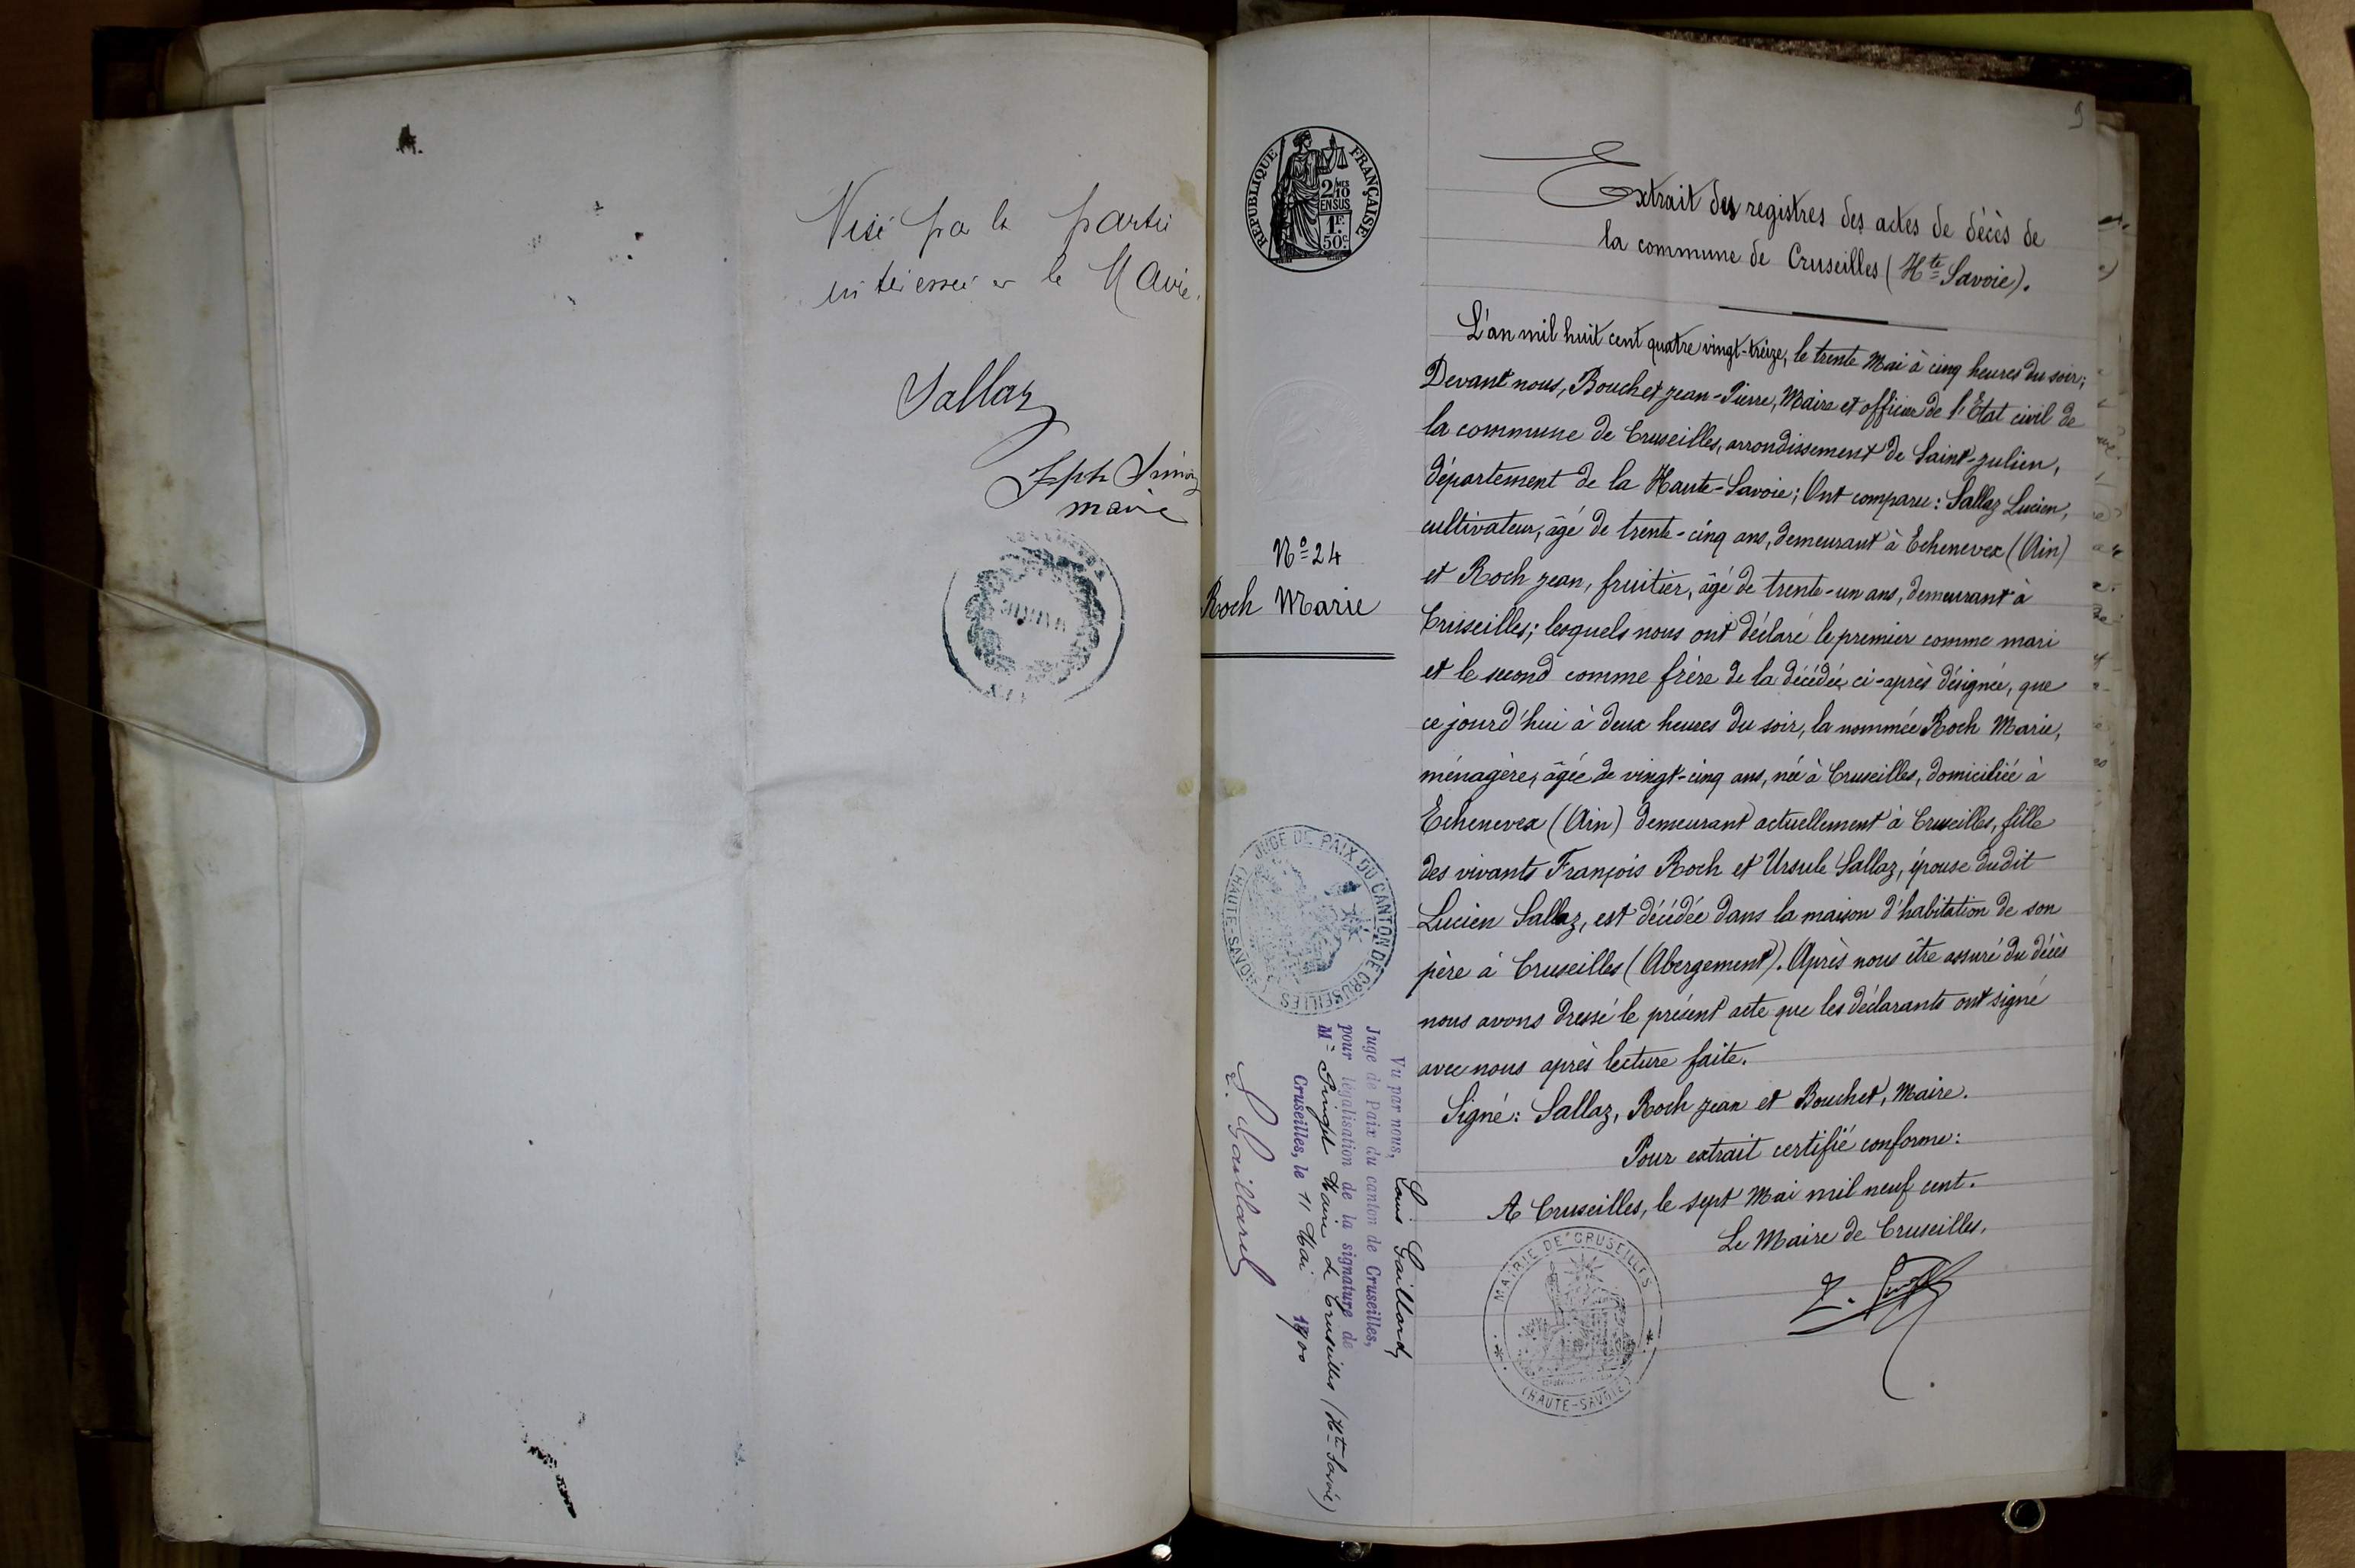 Visé par la partie
intéressée et le Maire.
Sallaz
Jph
maire
MAIRIE
AIN
9
RÉPUBLIQUE FRANÇAISE
2/10MES
EN SUS
1F.
50c.
Extrait des registres des actes de décès de
la commune de Cruseilles (Hte Savoie).
L'an mil huit cent quatre vingt-treize, le trente Mai à cinq heures du soir;
Devant nous, Bouchet Jean-Pierre, Maire et officier de l'Etat civil de
la commune de Cruseilles, arrondissement de Saint-Julien,
département de la Haute-Savoie; Ont comparu: Sallaz Lucien,
cultivateur, âgé de trente-cinq ans, demeurant à Echenevex (Ain)
et Roch Jean, fruitier, âgé de trente-un ans, demeurant à
Cruseilles; lesquels nous ont déclaré le premier comme mari
et le second comme frère de la décédée ci-après désignée, que
ce jourd'hui à deux heures du soir, la nommée Roch Marie,
ménagère, âgée de vingt-cinq ans, née à Cruseilles, domiciliée à
Echenevex (Ain) demeurant actuellement à Cruseilles, fille
des vivants François Roch et Ursule Sallaz, épouse dudit
Lucien Sallaz, est décédée dans la maison d'habitation de son
père à Cruseilles (Abergement). Après nous être assuré du décès
nous avons dressé le présent acte que les déclarants ont signé
avec nous après lecture faite.
Signé: Sallaz, Roch Jean et Bouchet, Maire.
Pour extrait certifié conforme:
A Cruseilles, le sept Mai mil neuf cent.
Le Maire de Cruseilles,
MAIRIE DE CRUSEILLES
(HAUTE-SAVOIE)
No 24
Roch Marie
JUGE DE PAIX DU CANTON DE CRUSEILLES
(HAUTE-SAVOIE)
Vu par nous, Louis Gaillard,
Juge de Paix du canton de Cruseilles,
pour légalisation de la signature de
Mr Pingel Maire de Cruseilles (Hte Savoie)
Cruseilles, le 11 Mai 1900
L. Gaillard